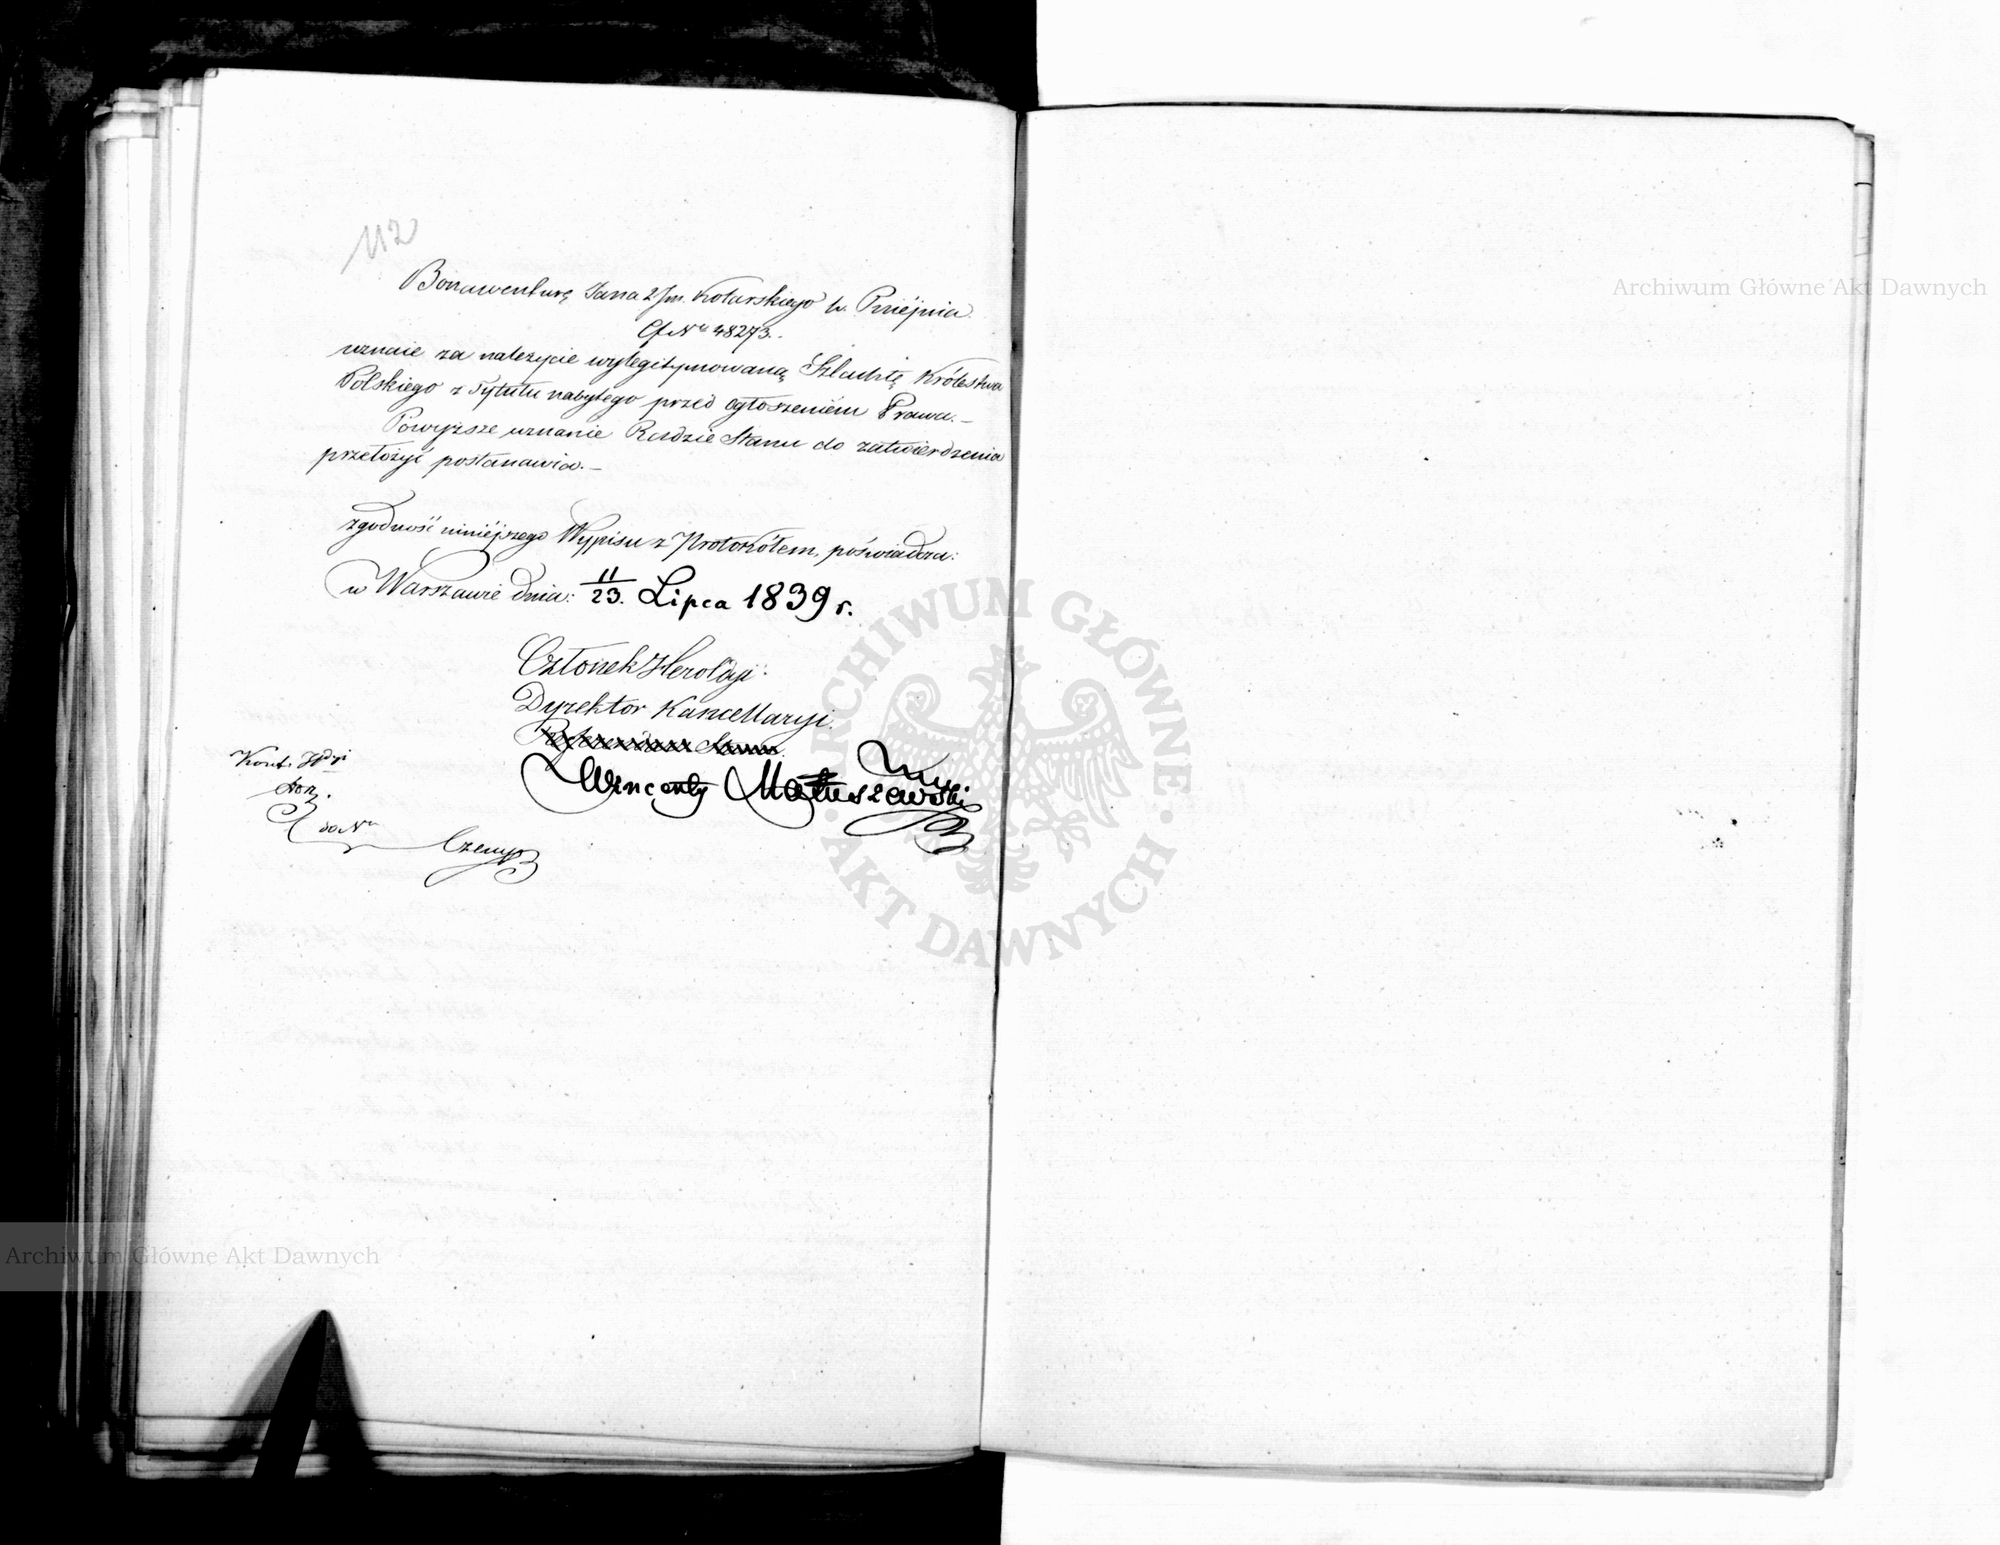 112
Bonawenturę Jana 2 Im. Kotarskiego h. Pniejnia.
Cf. Nr 48273.
uznaie za należycie wylegitymowaną Szlachtę Królestwa
Polskiego z Tytułu nabytego przed ogłoszeniem Prawa.—
Powyższe uznanie Radzie Stanu do zatwierdzenia
przełożyć postanawia.—
zgodność niniéjszego Wypisu z Protokółem, poświadcza:
w Warszawie dnia: 11/23. Lipca 1839 r.
Członek Heroldyi:
Dyrektor Kancellaryi.
Stanu
Wincenty Matuszewski
Kont.
do Nru
Archiwum Główne Akt Dawnych
ARCHIWUM GŁÓWNE
AKT DAWNYCH
Archiwum Główne Akt Dawnych